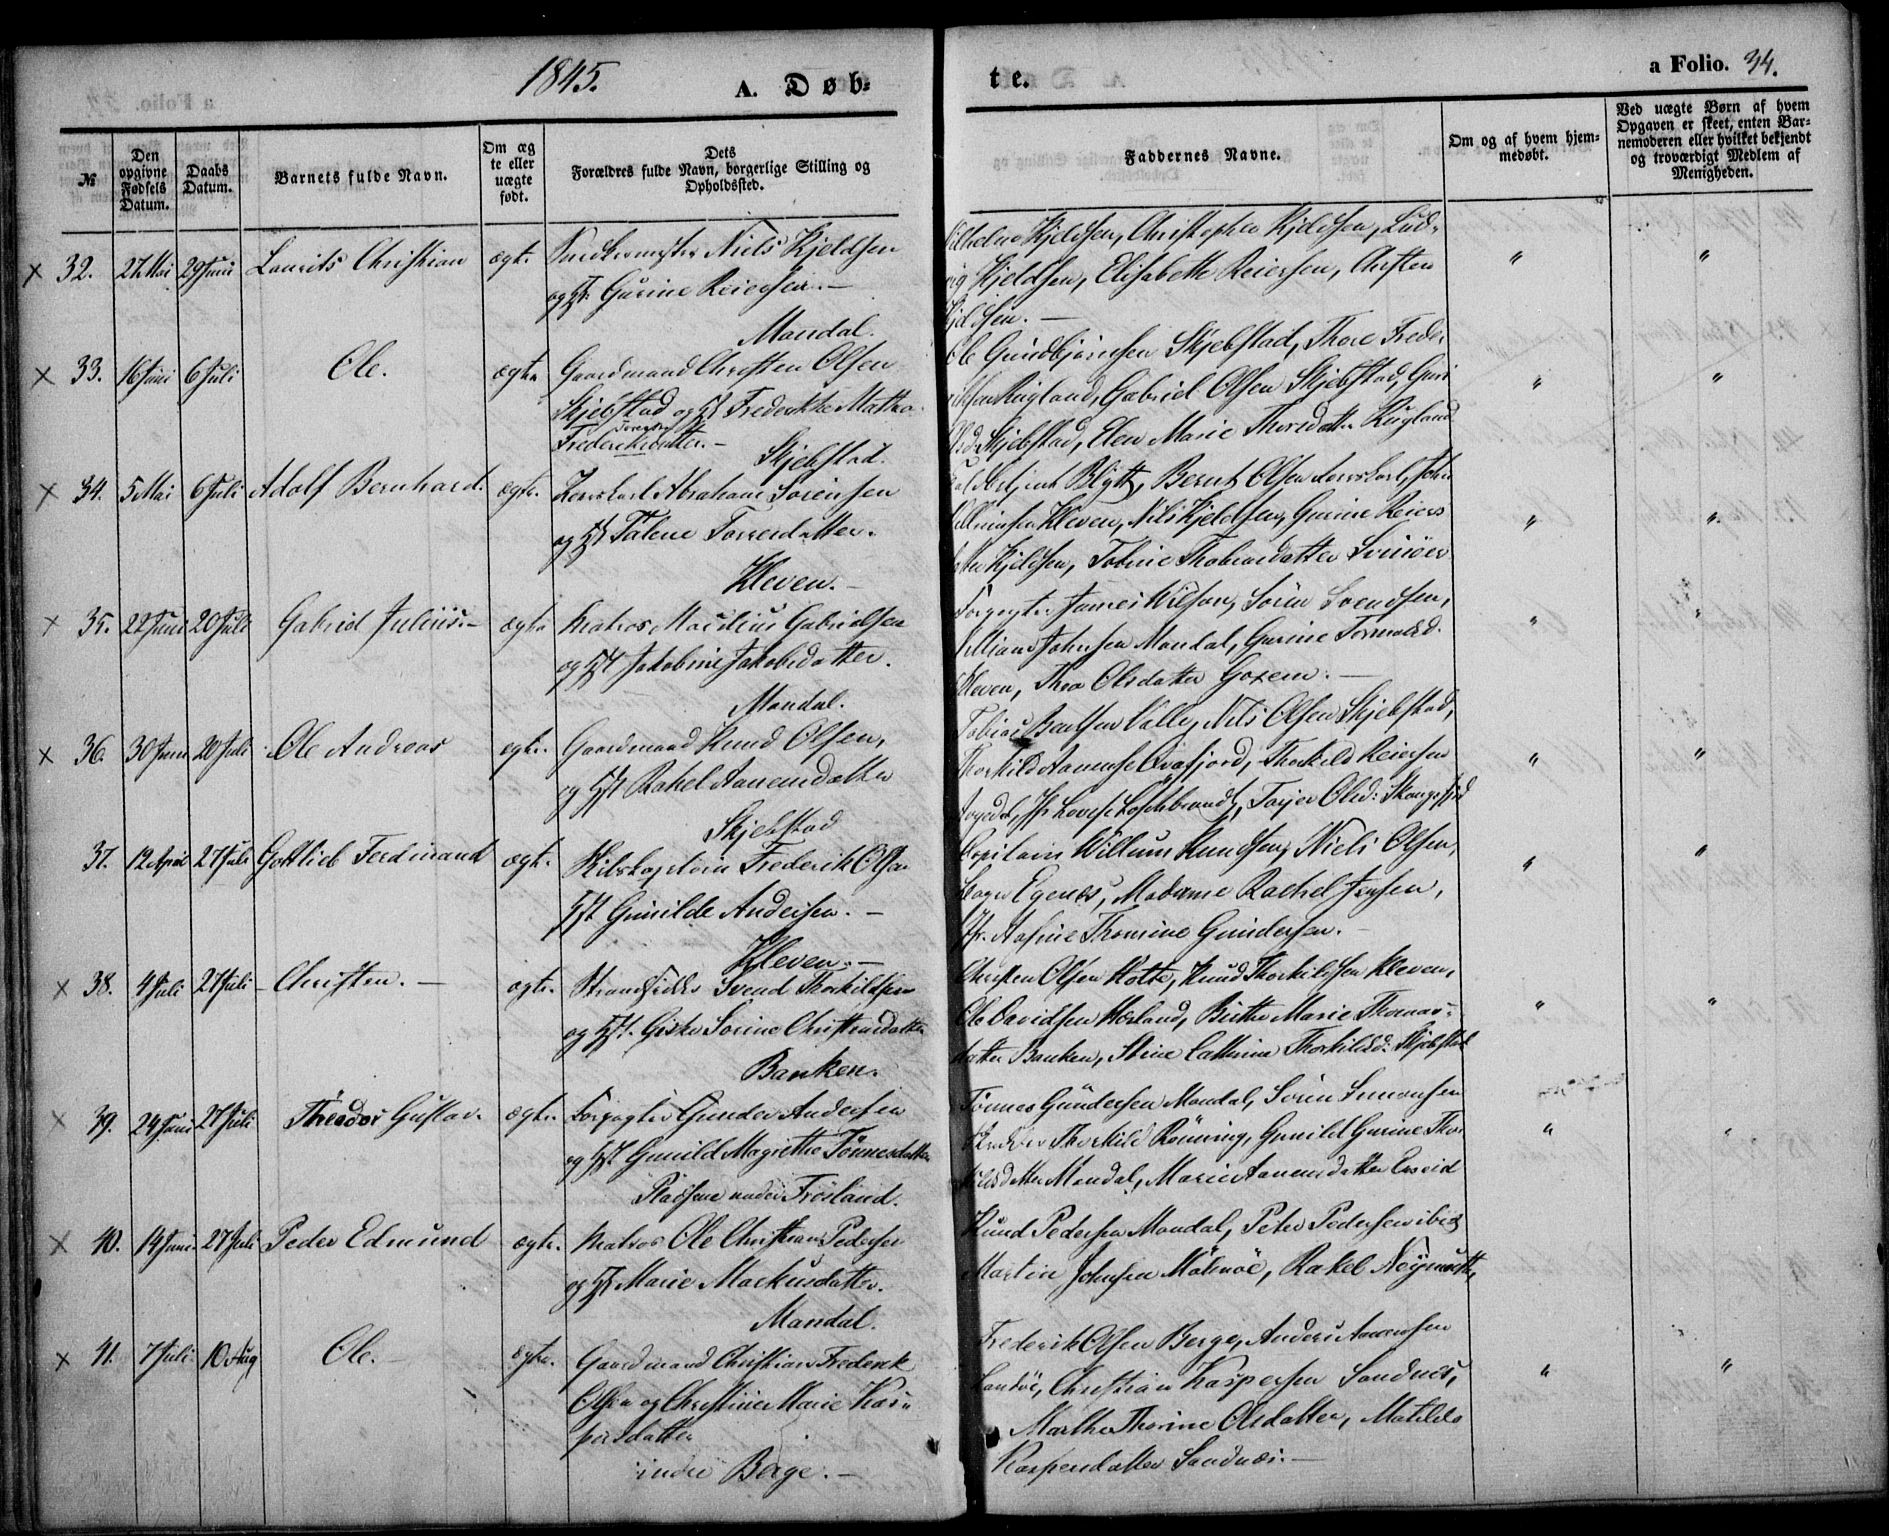 1845.
A. Døb-
te.
a Folio. 34.
№
Den opgivne Fødsels Datum.
Daabs Datum.
Barnets fulde Navn.
Om æg te eller uægte født.
Dets Forældres fulde Navn, borgerlige Stilling og Opholdssted.
Faddernes Navne.
Om og af hvem hjem-
medøbt.
Ved uægte Børn af hvem
Opgaven er skeet, enten Bar-
nemoderen eller hvilket bekjendt
og troværdigt Medlem af
Menigheden.
× 32. 27 Mai 29 Juni Laurits Christian ægte. Niels Kjeldsen
og Hst. Gurine Reiersen. —
Mandal.
Kjeldsen, Christopher Kjeldsen, Lud-
vig Kjeldsen, Elisabeth Reiersen, Christen
× 33. 16 Juni 6 Juli Ole. ægte Gaardmand Christen Olsen
Skjebstad og Hst Frederikke Matha
Skjebstad.
Ole Gundbjørnsen Skjebstad, Thore Frede-
Rugland, Gabriel Olsen Skjebstad, Guri
Skjebstad, Elen Marie Thoresdatter Rugland
× 34. 5 Mai 6 Juli Adolf Bernhard. ægte. Abraham Sørensen
og Hst Talene Torresdatter.
Kleven. —
Blytt, Bernt Olsen
Kleven, Nils Kjeldsen, Gurine Reiers
datter Kjeldsen, Tobine Thobiasdatter Svinøer
× 35. 22 Juni 20 Juli Gabriel Julius. — ægte Matros Gabrielsen
og Hst Jakobine Jakobsdatter.
Mandal.
James Wilson, Sørn Svendsen,
Johnsen Mandal, Gurine
Kleven, Thea Olsdatter
× 36. 30 Juni 20 Juli Ole Andreas ægte. Gaardmand Knud Olsen,
og Hst Rakel Aanensdatter
Skjebstad
Tobias Berntsen Valle, Nils Olsen Skjebstad,
Thorkild Aanensen Thorkild Reiersen
37. 12 April 27 Juli Gottlieb Ferdinand ægte. Skibskaptein Frederik Olsen
Hst Gunilde Andersen. —
Kleven. —
Capitain Willum Knudsen, Niels Olsen,
Egenes, Madame Rachel Jensen,
Thomine Gundersen. —
× 38. 4 Juli 27 Juli Christen. — ægte. Strandsidder Svend Thorkildsen
og Hst. Giske Sorine Christensdatter
Banken.
Christen Olsen Holte, Knud Thorkildsen Kleven,
Ole Davidsen Berthe Marie Thomas-
datter Banken, Stine Cathrine Thorkildsd: Skjebstad
× 39. 24 Juni 27 Juli Theodor Gustav. ægte. Gunder Andersen
og Hst. Gunild Magrethe Tønnesdatter
Pladsene under Frøsland.
Tønnes Gundersen Mandal, Sørn Simonsen
Thorkild Rønning, Gunild Gurine Thor
kildsdatter Mandal, Marie Aanensdatter
× 40. 14 Juni 27 Juli Peder Edmund ægte. Matros Ole Christian Pedersen
og Hst Marie Markusdatter.
Mandal.
Knud Pedersen Mandal, Peter Pedersen ibid
Martin Johnsen Malmøe, Rakel
× 41. 7 Juli 10 Aug Ole. — ægte. Gaardmand Christian Frederik
Olsen og Christine Marie Kas-
persdatter
indre Berge. —
Frederik Olsen Berge, Anders Aanensen
Christian Kaspersen Sandnes,
Marthe Thorine Olsdatter, Matilde
Kaspersdatter Sandnes. —